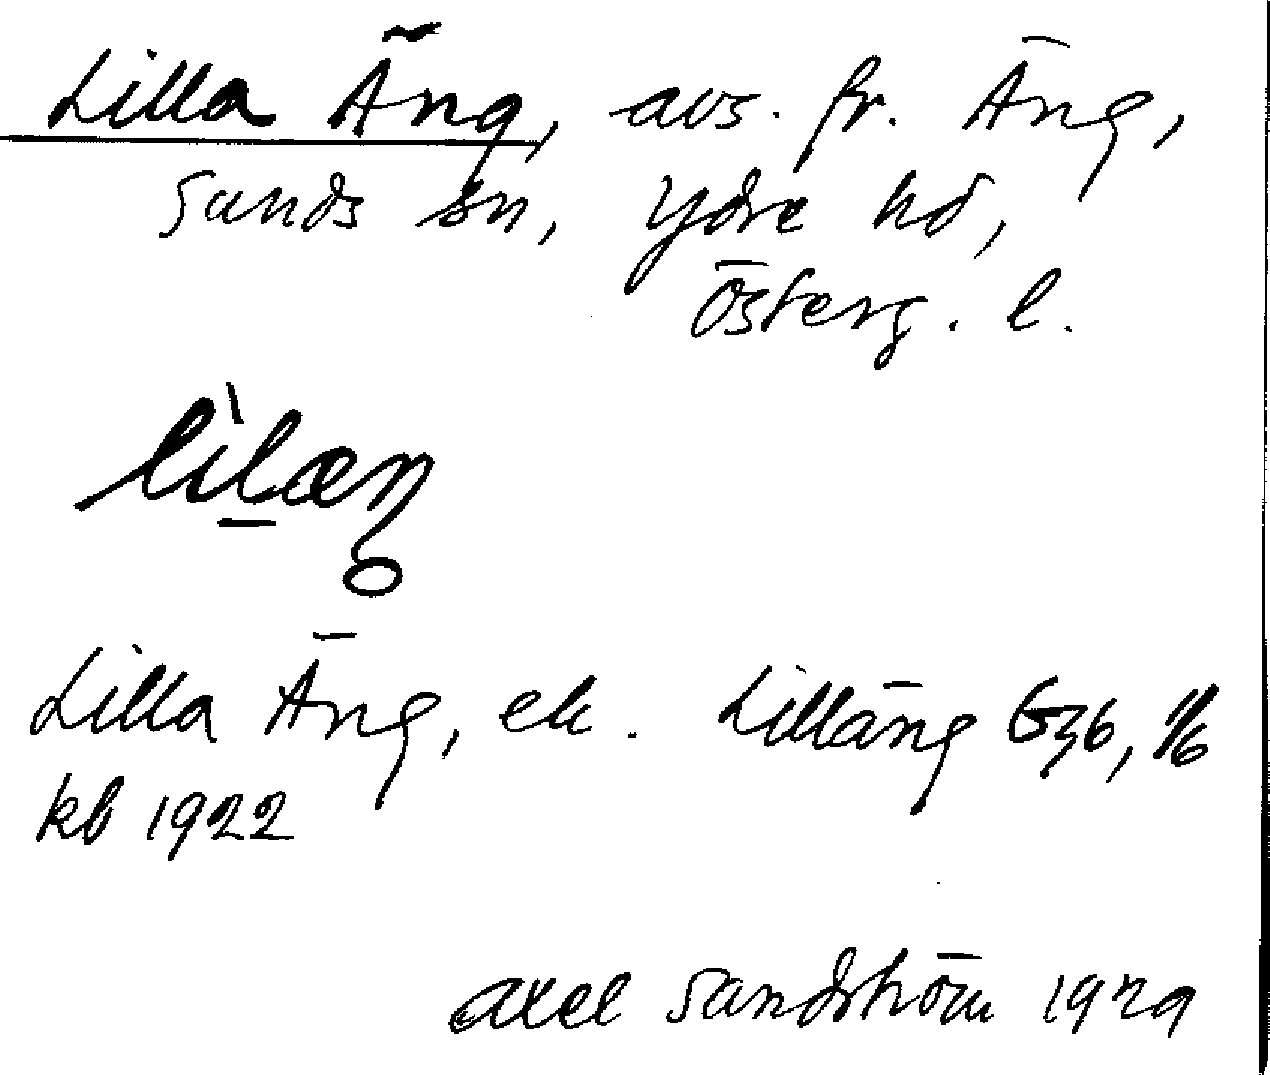 Lilla Äng, avs. fr. Äng,
Sunds sn, Ydre hd,
Österg. l.
lìlæŋ
Lilla Äng, ek. Lilläng G36, 1/6
kb 1922
Axel Sandström 1929